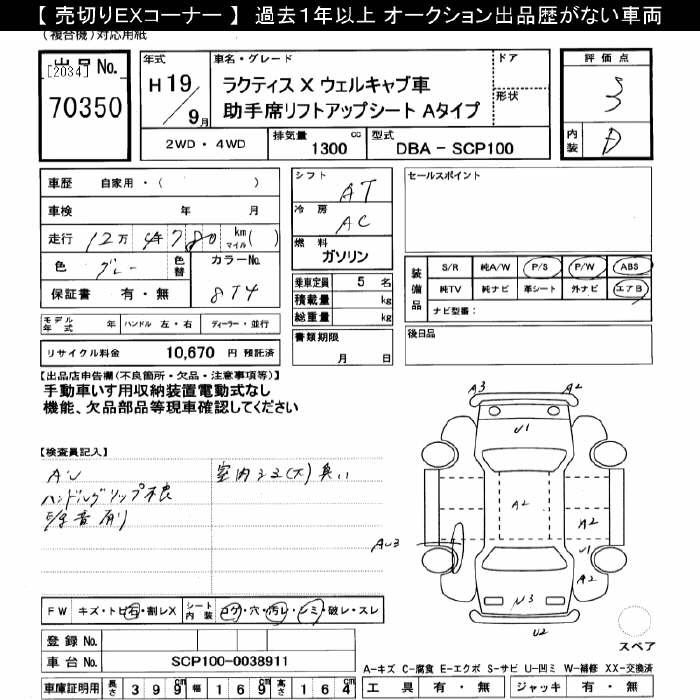 【 売切りEXコーナー 】 過去1年以上 オークション出品歴がない車両
(複合機)対応用紙
出品No.
[2034]
70350
年式
H 19/9月
車名・グレード
ラクティス X ウェルキャブ車
助手席リフトアップシート Aタイプ
ドア
形状
評価点
3
内装 D
2WD ・ 4WD
排気量 1300 cc
型式 DBA - SCP100
車歴 自家用・( )
車検 年 月
走行 12万 4千780 km マイル ( )
色 グレー 色替 カラーNo. 8T4
保証書 有・無
シフト AT
冷房 AC
燃料 ガソリン
乗車定員 5 名
積載量 kg
総重量 kg
書類期限 月 日
セールスポイント
装備品
S/R 純A/W P/S P/W ABS
純TV 純ナビ 革シート 外ナビ エアB
ナビ型番:
後日品
モデル年式 年 ハンドル 左・右 ディーラー・並行
リサイクル料金 10,670 円 預託済
【出品店申告欄(不良箇所・欠品・注意事項等)】
手動車いす用収納装置電動式なし
機能、欠品部品等現車確認してください
【検査員記入】
AU
ハンドルグリップ不良
室内シミ(大) 臭い
A3 A2
U1
A2
A2
AU3
U1
A2
U3
U2
FW キズ・トビ石・割レX
シート内装 コゲ・穴・汚レ・シミ・破レ・スレ
登録No.
車台No. SCP100-0038911
車庫証明用 長さ 399 幅 169 高さ 164
スペア
A-キズ C-腐食 E-エクボ S-サビ U-凹ミ W-補修 XX-交換済
工具 有・無 ジャッキ 有・無